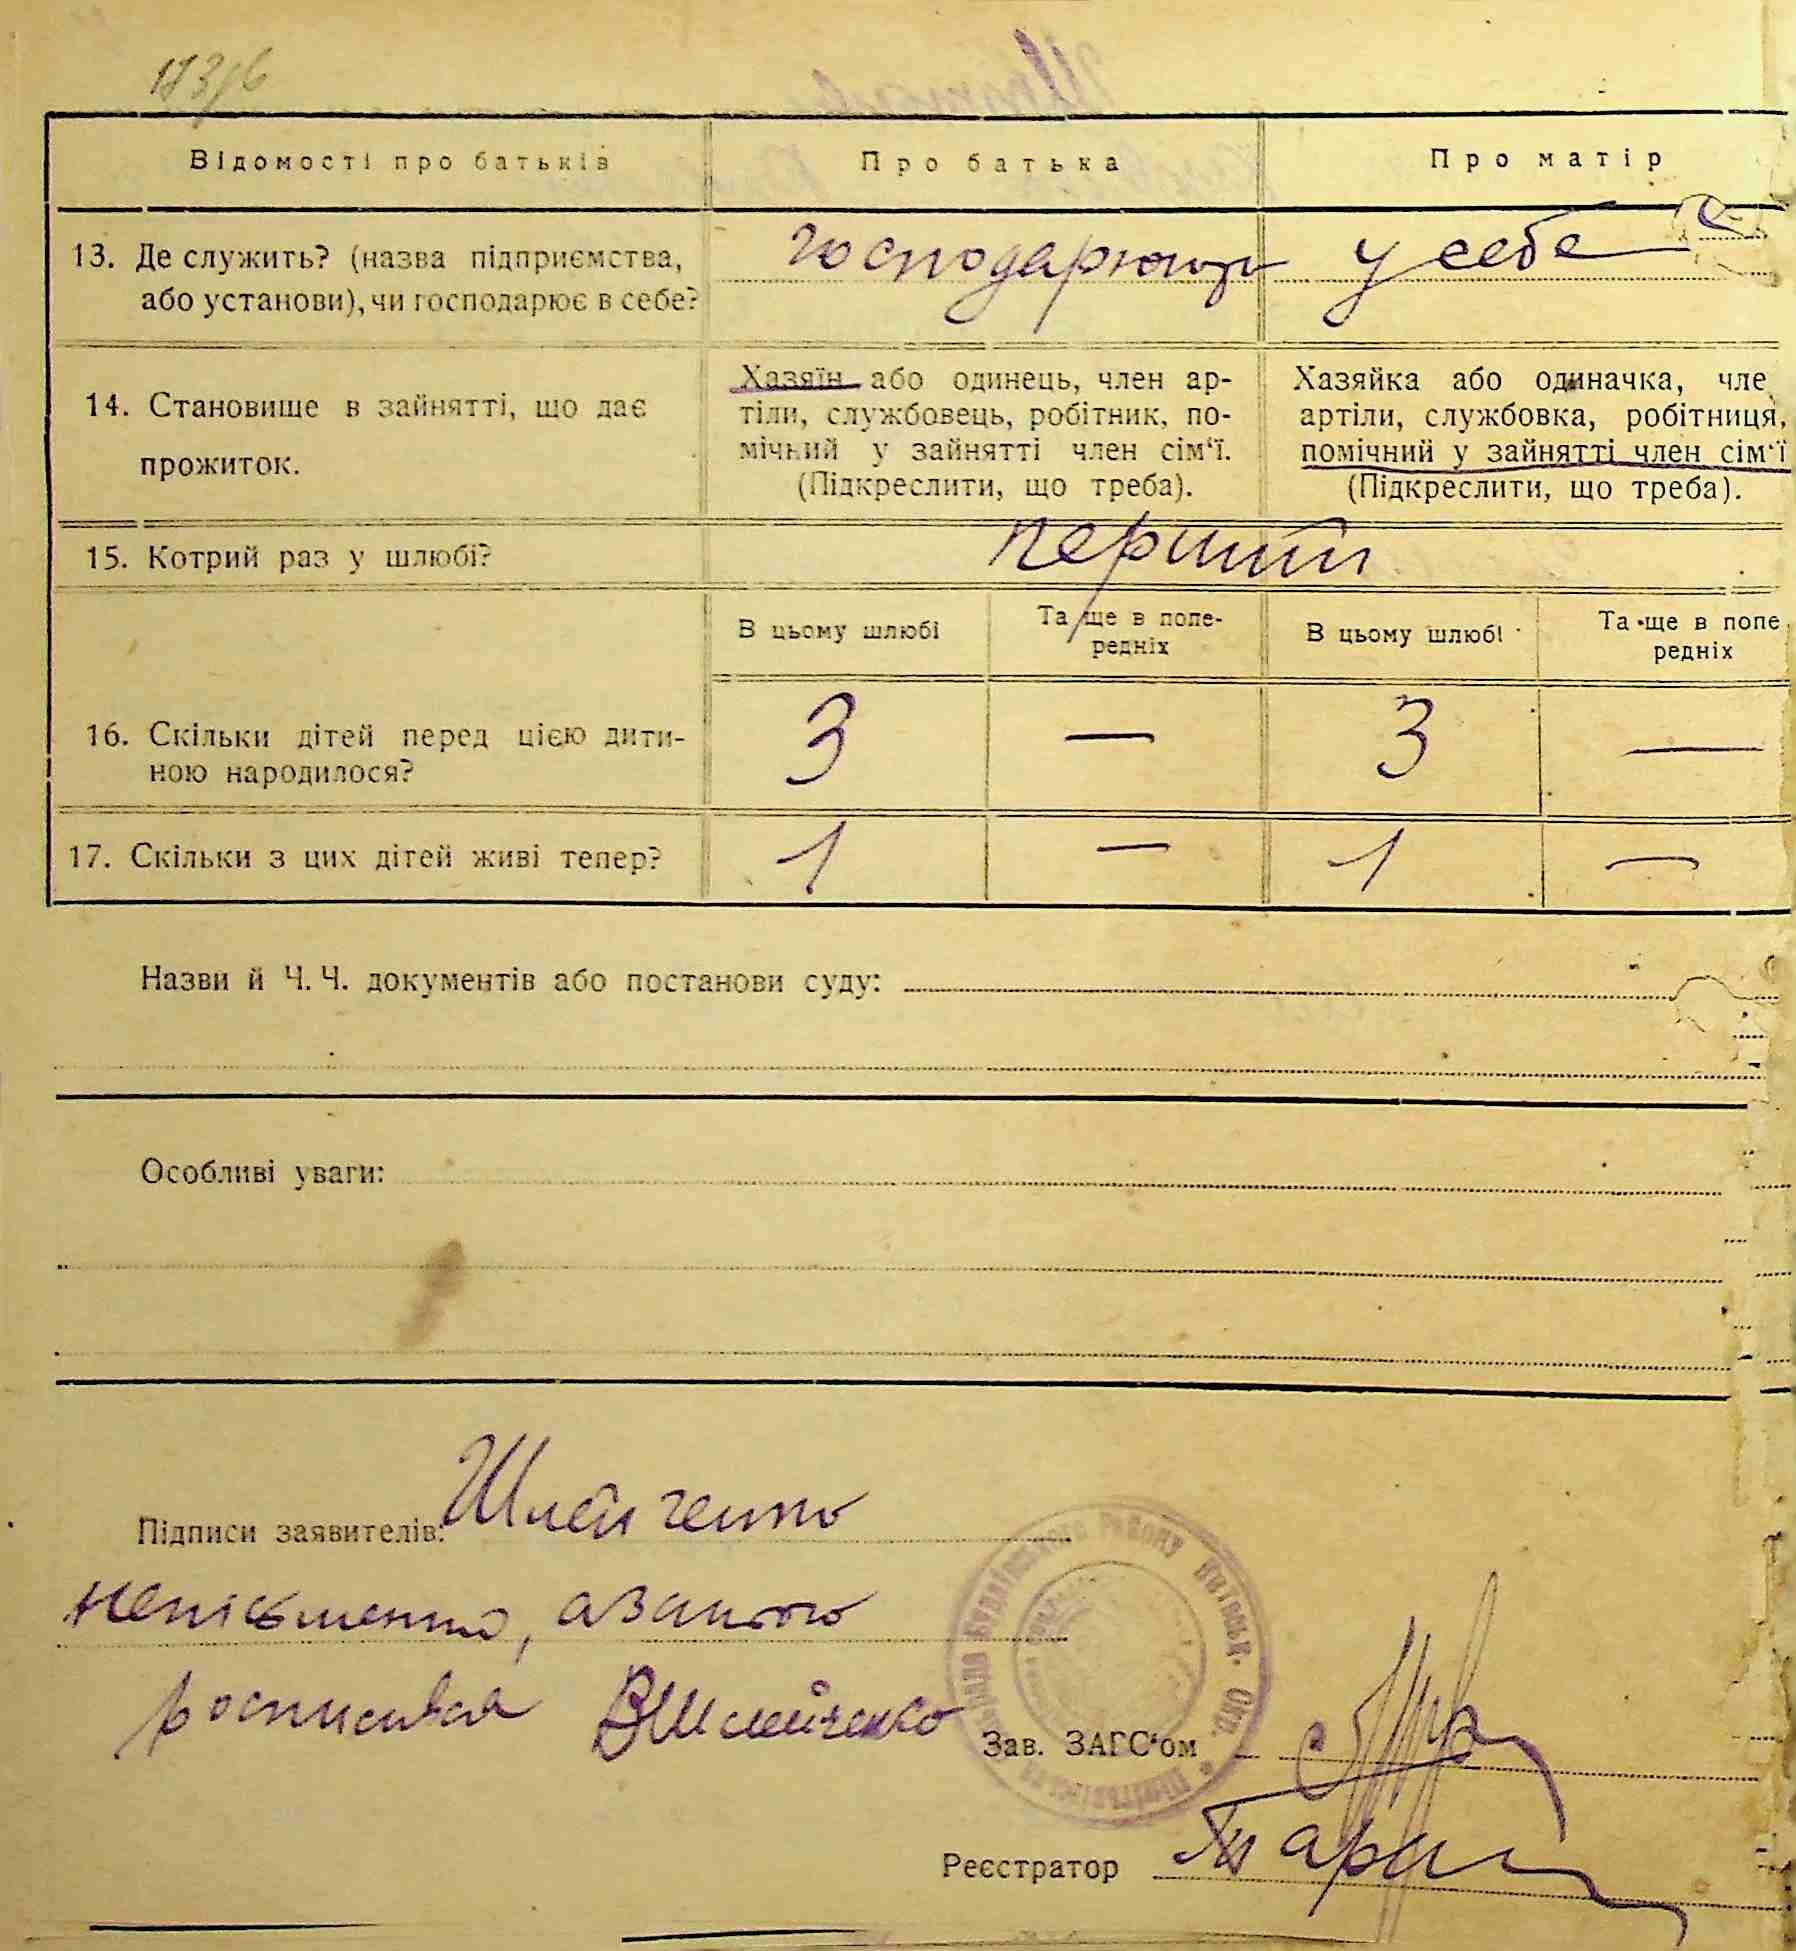 Відомості про батьків
Про батька
Про матір
13. Де служить? (назва підприємства,
або установи), чи господарює в себе?
господарюють у себе
14. Становище в зайнятті, що дає
прожиток.
Хазяїн або одинець, член ар-
тіли, службовець, робітник, по-
мічний у зайнятті член сім‘ї.
(Підкреслити, що треба).
Хазяйка або одиначка, чле
артіли, службовка, робітниця,
помічний у зайнятті член сім‘ї
(Підкреслити, що треба).
15. Котрий раз у шлюбі?
перший
В цьому шлюбі
Та ще в попе-
редніх
В цьому шлюбі
Та ще в попе
редніх
16. Скільки дітей перед цією дити-
ною народилося?
3 — 3 —
17. Скільки з цих дітей живі тепер?
1 — 1 —
Назви й Ч. Ч. документів або постанови суду:
Особливі уваги:
Підписи заявителів: Шлейченко
неписьменна, а за нею
росписався ВШлейченко
Зав. ЗАГС‘ом
Реєстратор